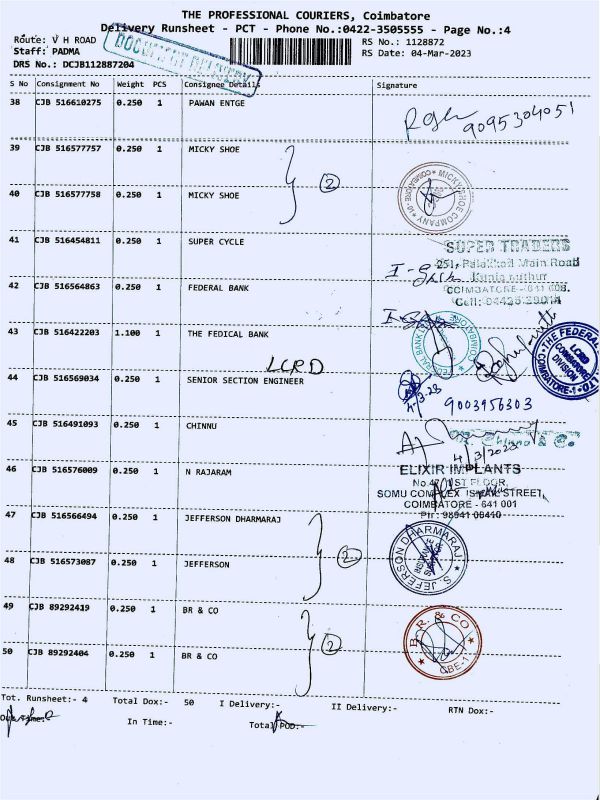 THE PROFESSIONAL COURIERS, Coimbatore
Delivery Runsheet - PCT - Phone No.:0422-3505555 - Page No.:4
Route: V H ROAD
RS No.: 1128872
Staff: PADMA
RS Date: 04-Mar-2023
DRS No.: DCJB112887204
DOCUMENT DELIVERY
S No Consignment No Weight PCS Consignee Details Signature
38 CJB 516610275 0.250 1 PAWAN ENTGE
9095304051
39 CJB 516577757 0.250 1 MICKY SHOE
2
MICKY SHOE COMPANY
COIMBATORE
40 CJB 516577758 0.250 1 MICKY SHOE
41 CJB 516454811 0.250 1 SUPER CYCLE
SUPER TRADERS
251, Palakkad Main Road
COIMBATORE - 641 008.
42 CJB 516564863 0.250 1 FEDERAL BANK
43 CJB 516422203 1.100 1 THE FEDICAL BANK
THE FEDERAL
LCRD
COIMBATORE-1
DIVISION
LCRD
44 CJB 516569034 0.250 1 SENIOR SECTION ENGINEER
9003956303
45 CJB 516491093 0.250 1 CHINNU
Chinnu & Co.
4/3/2023
46 CJB 516576009 0.250 1 N RAJARAM
ELIXIR IMPLANTS
No.47, 1ST FLOOR,
SOMU COMPLEX STREET,
COIMBATORE - 641 001
47 CJB 516566494 0.250 1 JEFFERSON DHARMARAJ
2
S. JEFFERSON DHARMARAJ
48 CJB 516573087 0.250 1 JEFFERSON
49 CJB 89292419 0.250 1 BR & CO
2
B.R. & CO
CBE-1
50 CJB 89292404 0.250 1 BR & CO
Tot. Runsheet:- 4 Total Dox:- 50 I Delivery:- II Delivery:- RTN Dox:-
In Time:- Total POD:-